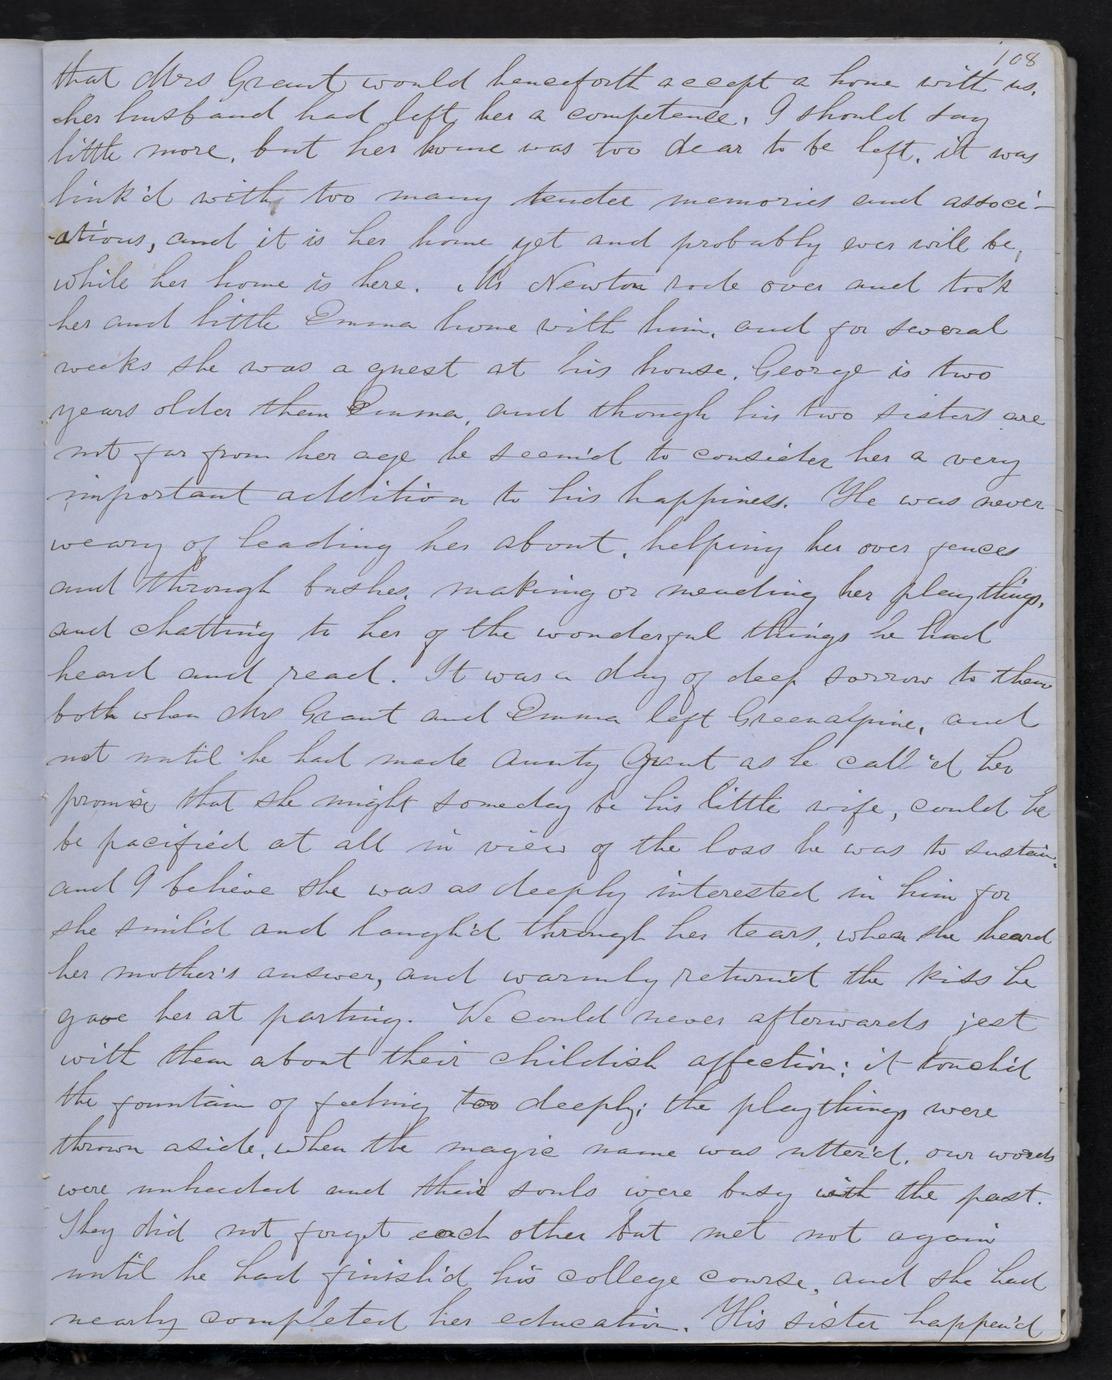 108
that Mrs Grant would henceforth accept a home with us.
her husband had left her a competence. I should say
little more, but her home was too dear to be left, it was
link'd with too many tender memories and associ-
-ations, and it is her home yet and probably ever will be,
while her home is here. Mr Newton rode over and took
her and little Emma home with him, and for several
weeks she was a guest at his house. George is two
years older them Emma, and though his two sisters are
not far from her age he seem'd to consider her a very
important addition to his happiness. He was never
weary of leading her about, helping her over fences
and through bushes, making or mending her playthings,
and chatting to her of the wonderful things he had
heard and read. It was a day of deep sorrow to them
both when Mrs Grant and Emma left Greenalpine, and
not until he had made Aunty Grant as he call'd her
promise that she might someday be his little wife, could he
be pacified at all in view of the loss he was to sustain.
and I believe she was as deeply interested in him for
she smil'd and laugh'd through her tears, when she heard
her mother's answer, and warmly return'd the kiss he
gave her at parting. We could never afterwards jest
with them about their childish affection; it touch'd
the fountain of feeling too deeply; the playthings were
thrown aside, when the magic name was utter'd, our words
were unheeded and their souls were busy with the past.
They did not forget each other but met not again
until he had finish'd his college course, and she had
nearly completed her education. His sister happen'd